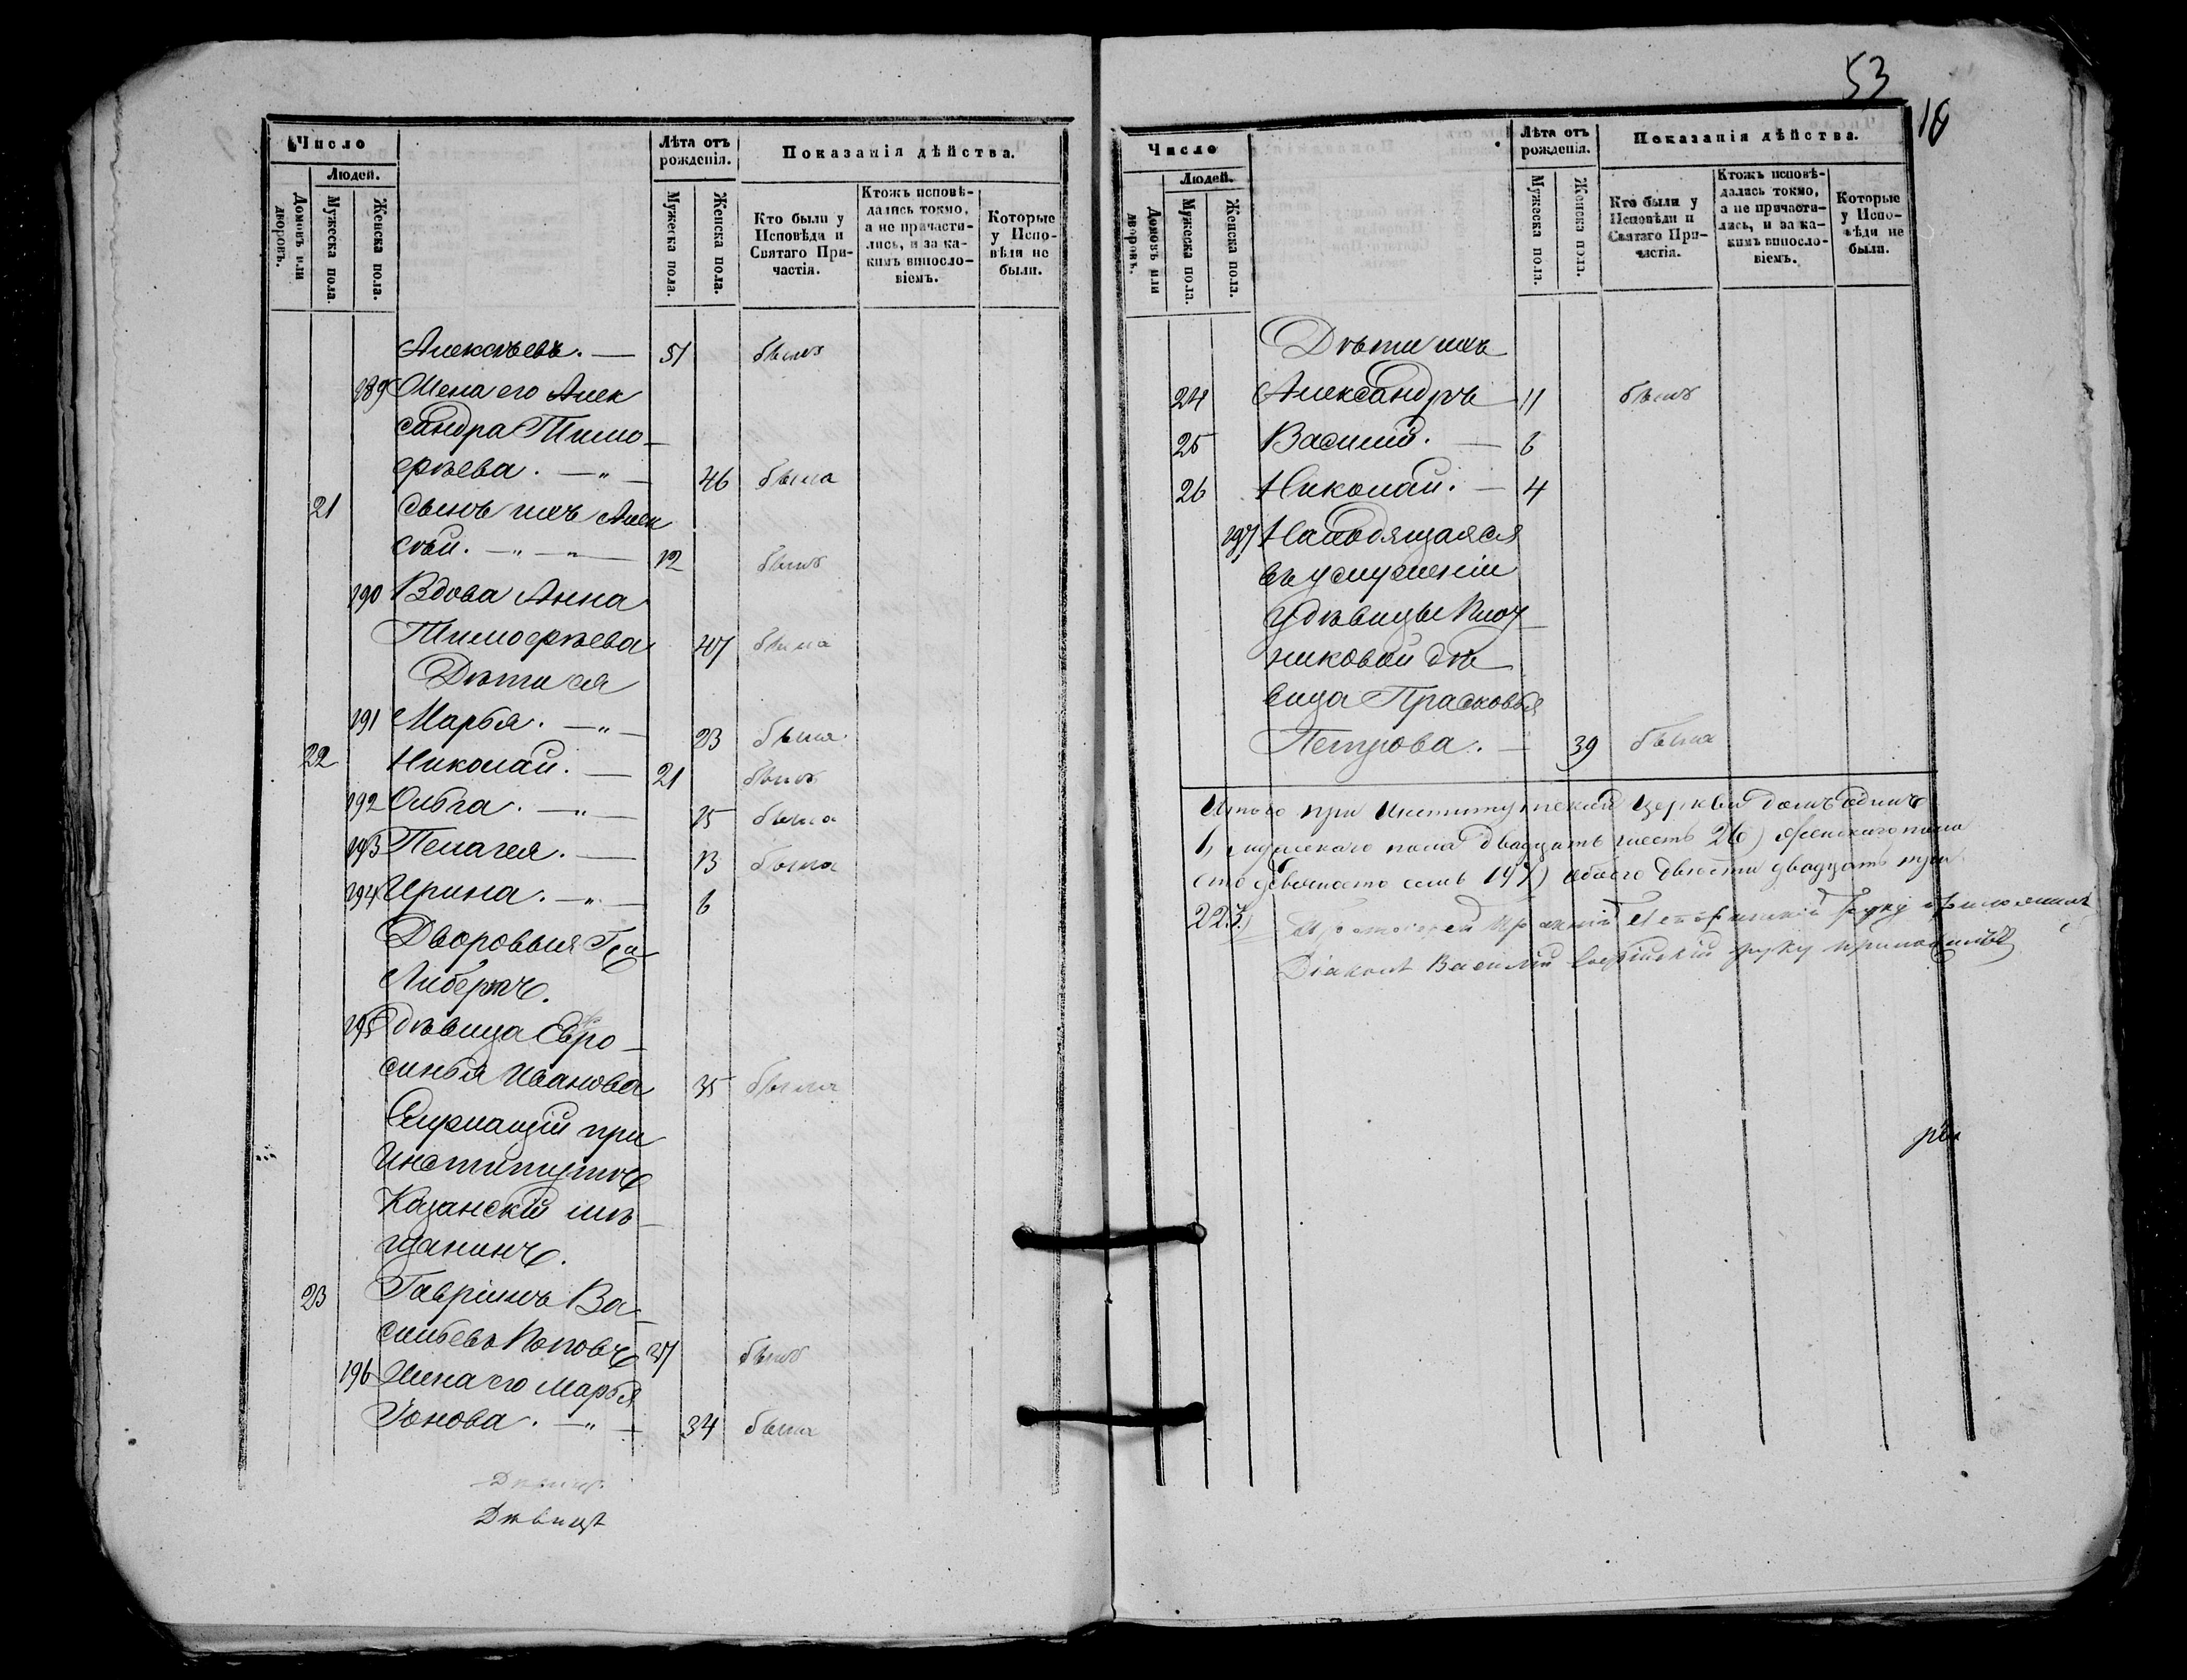 Число
Людей.
Домовъ или дворовъ.
Мужеска пола.
Женска пола.
Лѣта отъ рожденія.
Мужеска пола.
Женска пола.
Показанія дѣйства.
Кто были у Исповѣди и Святаго При-частія.
Ктожъ исповѣ-дались токмо, а не причасти-лись, и за ка-кимъ виносло-віемъ.
Которые у Испо-вѣди не были.
Алексѣевъ. — 51 былъ
189 Жена его Алек
сандра Тимо-
фѣева. — „ — 46 была
21 Сынъ ихъ Алек
сѣй. — „ — „ — 12 былъ
190 Вдова Анна
Тимофѣева 47 была
Дѣти ея
191 Марья. — „ — 23 была
22 Николай. — 21 былъ
192 Ольга. — „ — 15 была
193 Пелагея. — 13 была
194 Ирина. — „ — 6
Дворовыя Гра
Либертъ.
195 дѣвица Евро-
синья Иванова 35 была
Служащій при
Институтѣ
Казанскій мѣ-
щанинъ.
23 Гавріилъ Ва-
сильевъ Поповъ 37 былъ
196 Жена его Марья
Іонова. — „ — 34 была
53
10
Число
Людей.
Домовъ или дворовъ.
Мужеска пола.
Женска пола.
Лѣта отъ рожденія.
Мужеска пола.
Женска пола.
Показанія дѣйства.
Кто были у Исповѣди и Святаго При-частія.
Ктожъ исповѣ-дались токмо, а не причасти-лись, и за ка-кимъ виносло-віемъ.
Которые у Испо-вѣди не были.
Дѣти ихъ
24 Александръ 11 былъ
25 Василій. — 6
26 Николай. — 4
197 Находящаяся
въ услуженіи
у дѣвицы Ключ-
никовой дѣ-
вица Прасковья
Петрова. — 39 была
Итого при Институтской церкви домъ одинъ
1, мужескаго пола двадцать шесть 26) женскаго пола
сто девяносто семь 197) обоего двѣсти двадцать три
223) Протоіерей руку приложилъ
Діаконъ Василій руку приложилъ